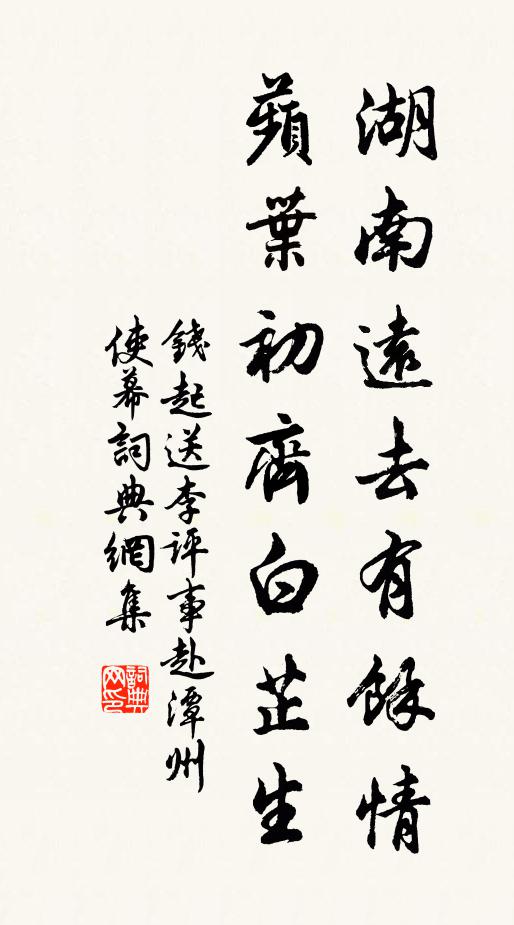 湖南遠去有餘情
蘋葉初齊白芷生
錢起送李評事赴潭州
使幕詞典網集
詞典
网印